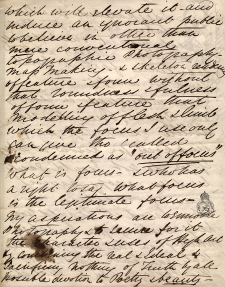 which will elevate it and
induce an ignorant public
to believe in other than
mere conventional
topographic Photography—
map making & skeleton rendering
of feature & form without
that roundness & fulness
of form & feature that
modelling of flesh & limb
which the focus I use only
can give tho' called &
condemned as "out of focus"
what is focus — & who has
a right to say what focus
is the legitimate focus —
My aspirations are to ennoble
Photography & to secure for it
the character & uses of High Art
by combining the real & Ideal &
sacrificing nothing of Truth by all
possible devotion to Poetry & beauty—